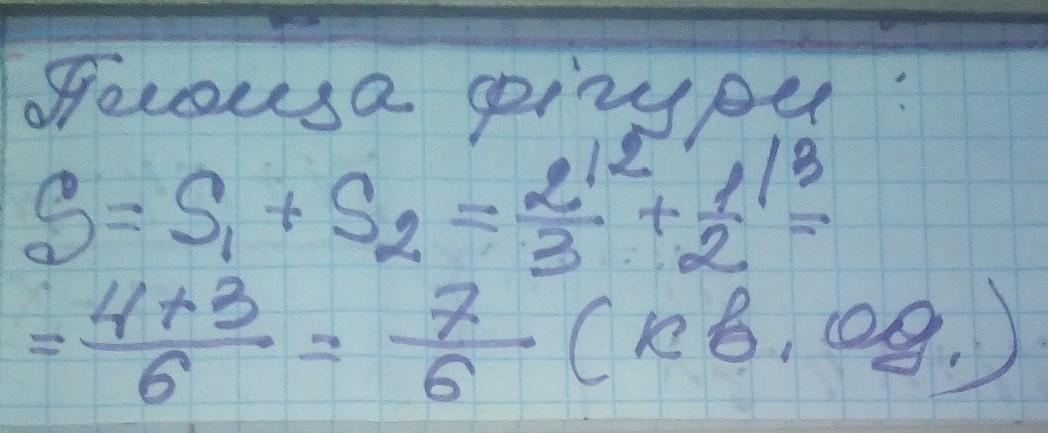 Площа фігури:
S = S₁ + S₂ = 2/3 |2 + 1/2 |3 =
= (4+3)/6 = 7/6 (кв. од.)